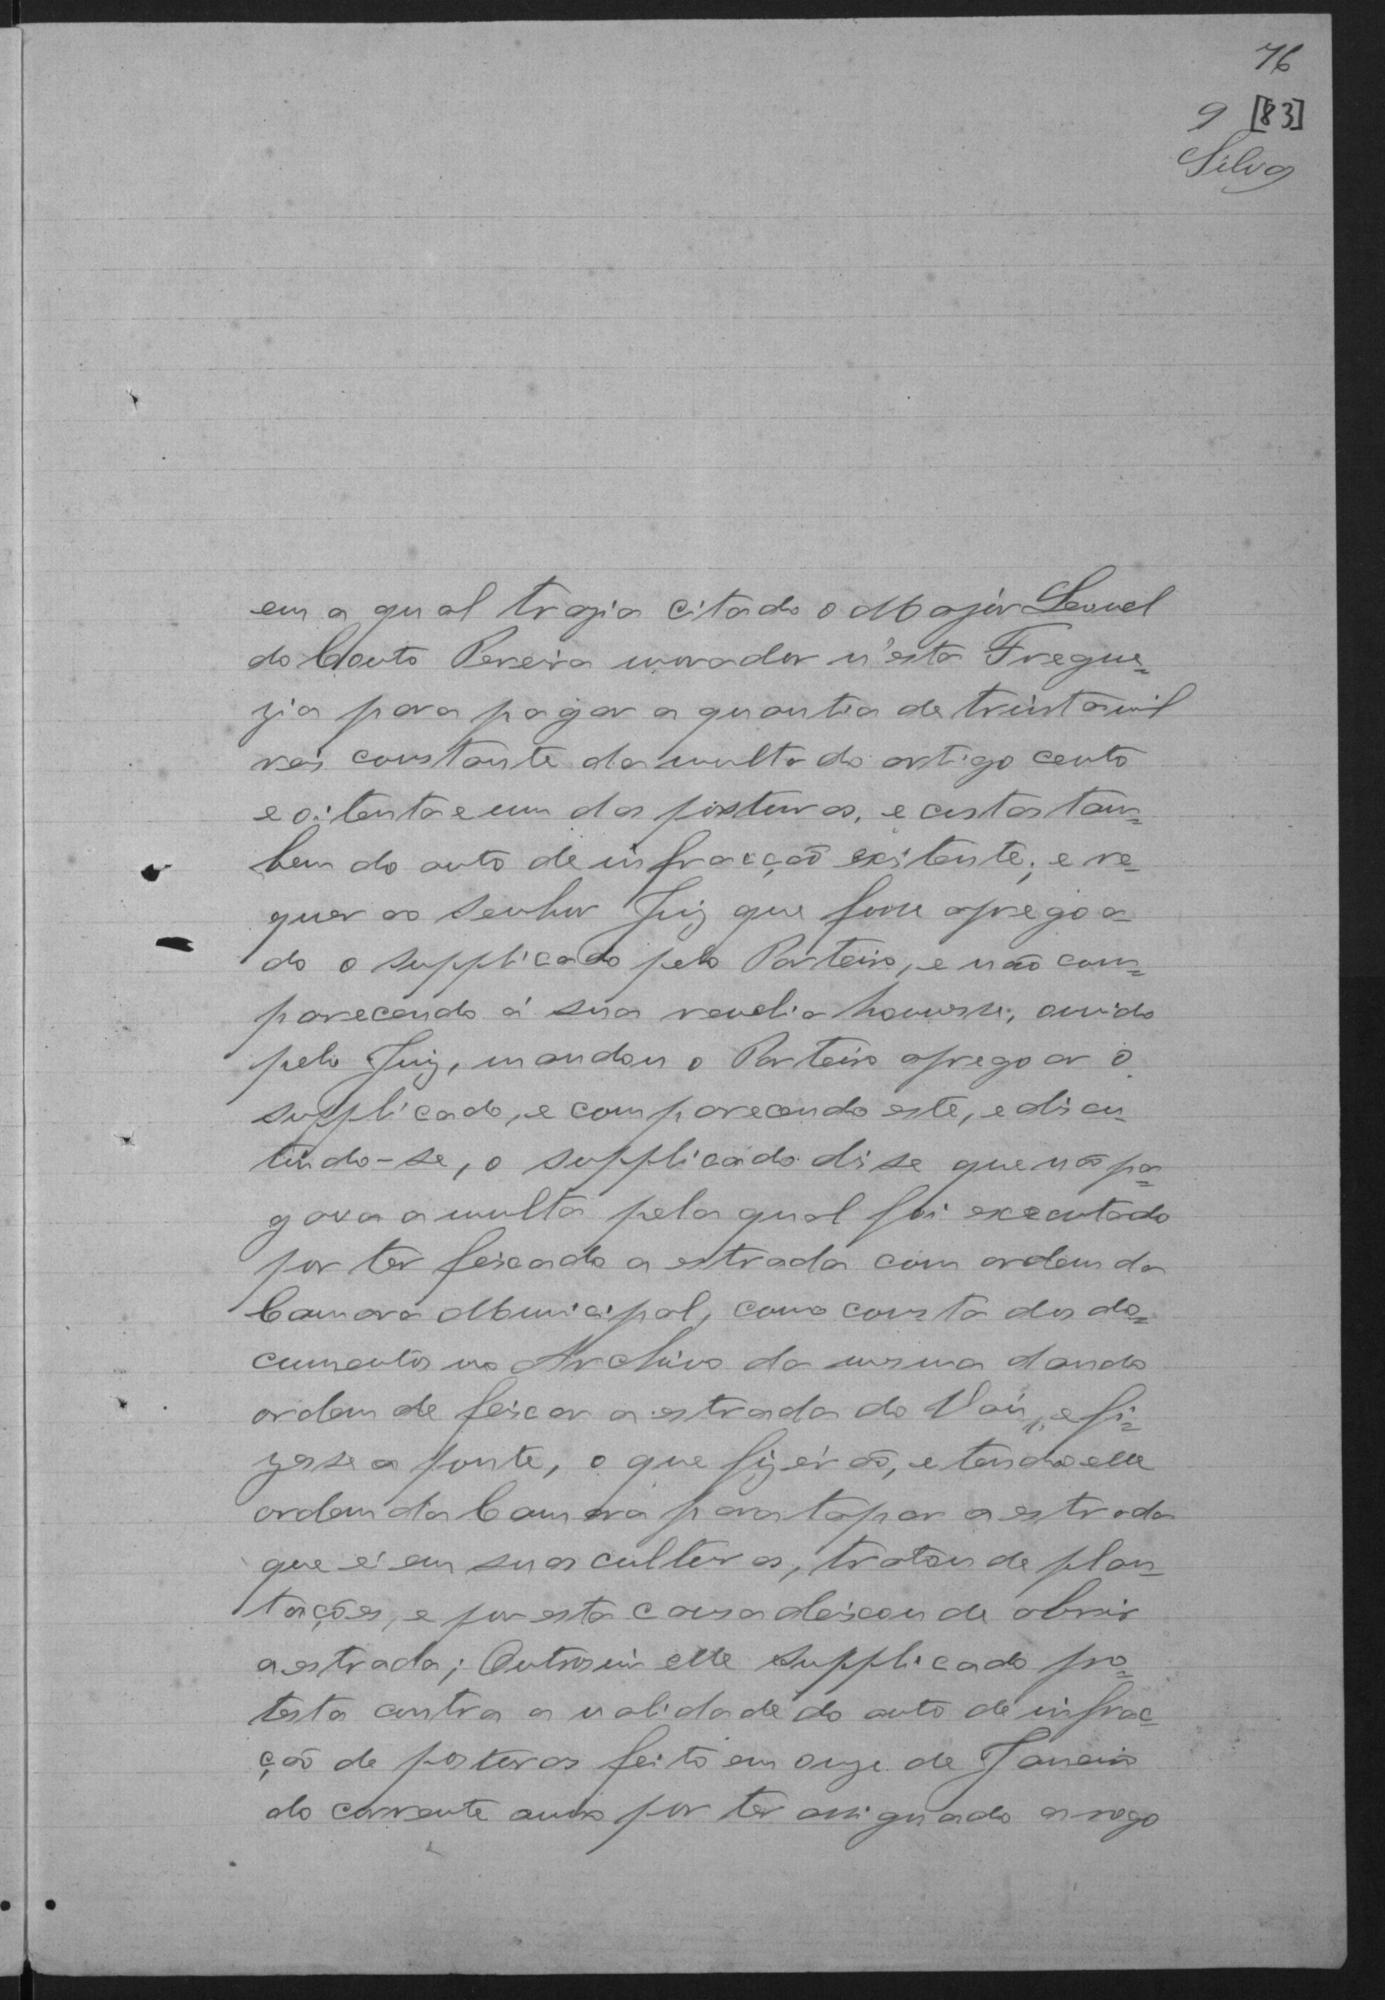 76
9 [83]
Silva
em a qual trazia citado o Major Leonel
do Couto Pereira morador n'esta Fregue=
zia para pagar a quantia de trinta mil
reis constante da multa do artigo cento
e oitenta e um das posturas, e custas tam=
bem do auto de infracção exitente; e re=
quer ao Senhor Juiz que fosse apregoa=
do o supplicado pelo Porteiro, e não com=
parecendo á sua revelia houvesse; ouvido
pelo Juiz, mandou o Porteiro apregoar o
supplicado, e comparecendo este, e discu=
tindo-se, o supplicado dise que não pa=
gava a multa pela qual foi executado
por ter feixado a estrada com ordem da
Camara Municipal, como consta dos do=
cumentos no Archivo da mesma dando
ordem de feixar a estrada do Váu, e fi=
zesse a ponte, o que fizérão, e tendo elle
ordem da Camara para tapar a estrada
que é em suas culturas, tratou de plan=
tações, e por esta causa deixou de abrir
a estrada; Outrosim elle supplicado pro=
testa contra a validade do auto de infrac=
ção de posturas feito em onze de Janeiro
do corrente anno por ter assignado a rogo